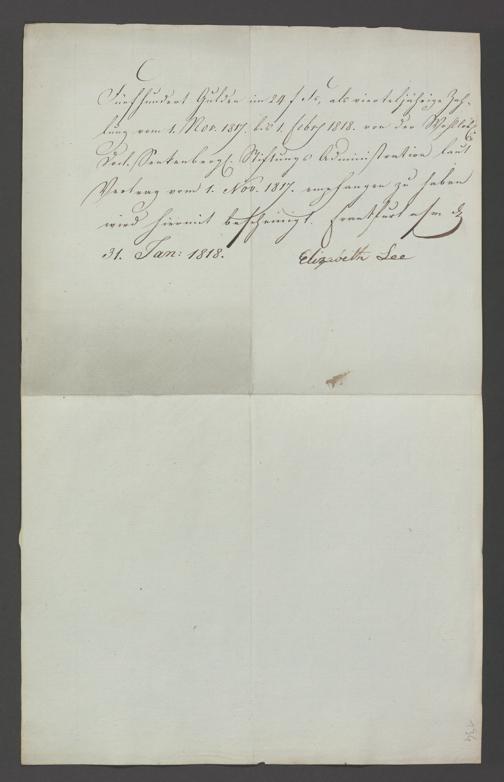 Fünfhundert Gulden im 24 f Fs, als vierteljährige Zah-
lung vom 1. Nov. 1817. bis 1. Febr 1818. von der Wohllöbl.
Doct. Senkenbergl. Stiftungs Administration laut
Vertrag vom 1. Nov. 1817. empfangen zu haben
wird hiermit bescheinigt. Frankfurt a/m d
31. Jan: 1818.
Elizabeth Lee
134